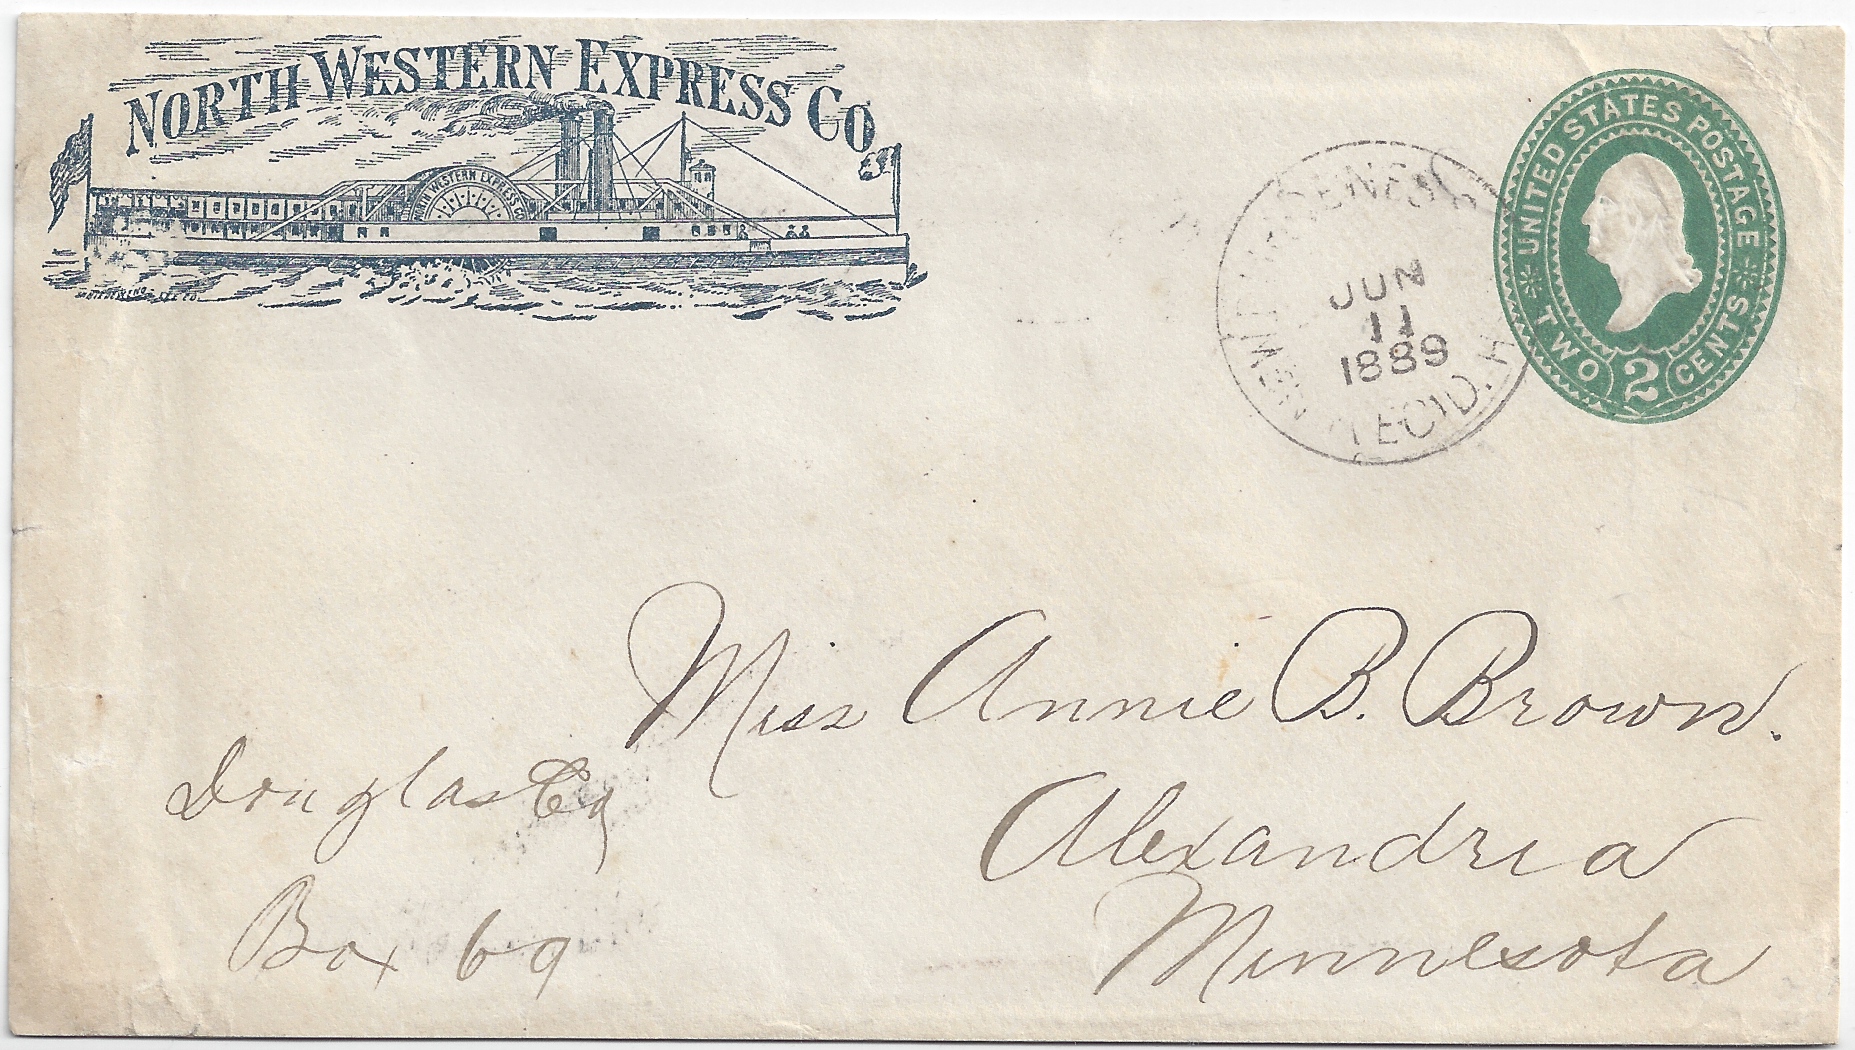 NORTH WESTERN EXPRESS CO.
NORTH WESTERN EXPRESS CO.
UNITED STATES POSTAGE
TWO 2 CENTS
JUN
11
1889
REC'D.
Miss Annie B. Brown.
Douglas Co
Alexandria
Box 69
Minnesota